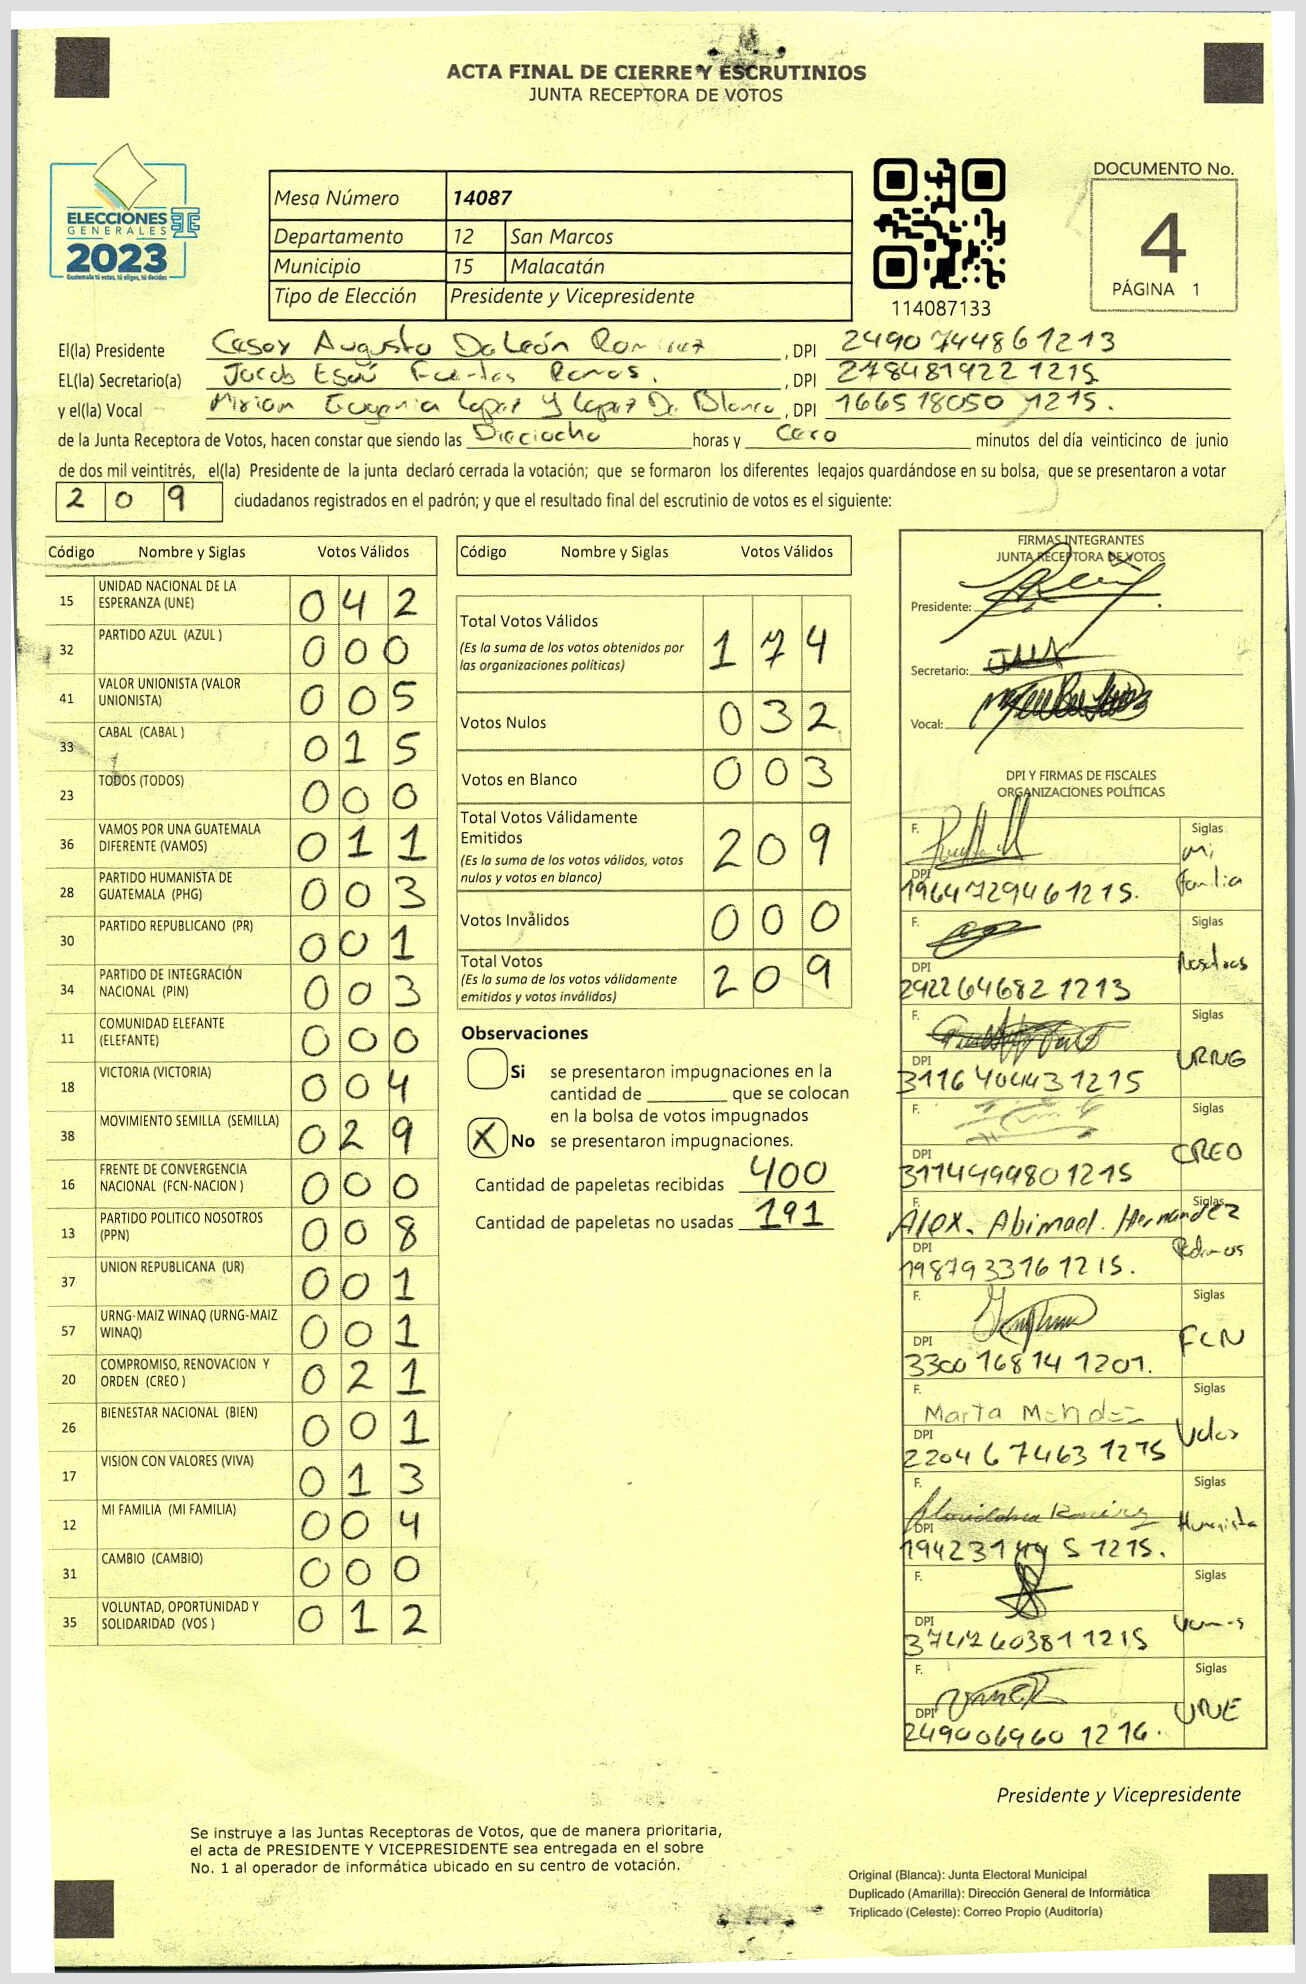 ACTA FINAL DE CIERRE Y ESCRUTINIOS
JUNTA RECEPTORA DE VOTOS
ELECCIONES
GENERALES
2023
Guatemala tú votas, tú eliges, tú decides
Mesa Número 14087
Departamento 12 San Marcos
Municipio 15 Malacatán
Tipo de Elección Presidente y Vicepresidente
114087133
DOCUMENTO No.
4
PÁGINA 1
El(la) Presidente Cesar Augusto De León Ramirez, DPI 2490744861213
EL(la) Secretario(a) Jacob Esaú Fuentes Ramos., DPI 2784819221215
y el(la) Vocal Miriam Eugenia Lopez y Lopez De Blanco, DPI 1665180501215.
de la Junta Receptora de Votos, hacen constar que siendo las Dieciocho horas y Cero minutos del día veinticinco de junio
de dos mil veintitrés, el(la) Presidente de la junta declaró cerrada la votación; que se formaron los diferentes legajos guardándose en su bolsa, que se presentaron a votar
209 ciudadanos registrados en el padrón; y que el resultado final del escrutinio de votos es el siguiente:
Código Nombre y Siglas Votos Válidos
15 UNIDAD NACIONAL DE LA ESPERANZA (UNE) 042
32 PARTIDO AZUL (AZUL ) 000
41 VALOR UNIONISTA (VALOR UNIONISTA) 005
33 CABAL (CABAL ) 015
23 TODOS (TODOS) 000
36 VAMOS POR UNA GUATEMALA DIFERENTE (VAMOS) 011
28 PARTIDO HUMANISTA DE GUATEMALA (PHG) 003
30 PARTIDO REPUBLICANO (PR) 001
34 PARTIDO DE INTEGRACIÓN NACIONAL (PIN) 003
11 COMUNIDAD ELEFANTE (ELEFANTE) 000
18 VICTORIA (VICTORIA) 004
38 MOVIMIENTO SEMILLA (SEMILLA) 029
16 FRENTE DE CONVERGENCIA NACIONAL (FCN-NACION ) 000
13 PARTIDO POLITICO NOSOTROS (PPN) 008
37 UNION REPUBLICANA (UR) 001
57 URNG-MAIZ WINAQ (URNG-MAIZ WINAQ) 001
20 COMPROMISO, RENOVACION Y ORDEN (CREO ) 021
26 BIENESTAR NACIONAL (BIEN) 001
17 VISION CON VALORES (VIVA) 013
12 MI FAMILIA (MI FAMILIA) 004
31 CAMBIO (CAMBIO) 000
35 VOLUNTAD, OPORTUNIDAD Y SOLIDARIDAD (VOS ) 012
Código Nombre y Siglas Votos Válidos
Total Votos Válidos 174
(Es la suma de los votos obtenidos por las organizaciones políticas)
Votos Nulos 032
Votos en Blanco 003
Total Votos Válidamente Emitidos 209
(Es la suma de los votos válidos, votos nulos y votos en blanco)
Votos Inválidos 000
Total Votos 209
(Es la suma de los votos válidamente emitidos y votos inválidos)
Observaciones
Si se presentaron impugnaciones en la
cantidad de ________ que se colocan
en la bolsa de votos impugnados
X No se presentaron impugnaciones.
Cantidad de papeletas recibidas 400
Cantidad de papeletas no usadas 191
FIRMAS INTEGRANTES
JUNTA RECEPTORA DE VOTOS
Presidente:
Secretario:
Vocal:
DPI Y FIRMAS DE FISCALES
ORGANIZACIONES POLÍTICAS
F. Siglas Mi Familia
DPI 1964729461215.
F. Siglas Nosotros
DPI 2922646821213
F. Siglas URNG
DPI 3116404431215
F. Siglas CREO
DPI 3114499801215
F. Alex. Abimael. Hernández Siglas
DPI 1987933161215.
F. Siglas FCN
DPI 3300168141201.
F. Marta Mendez Siglas Valor
DPI 2204674631215
F. Ramirez Siglas Humanista
DPI 1942314451215.
F. Siglas Vamos
DPI 3747603811215
F. Siglas UNE
DPI 2490069601216.
Presidente y Vicepresidente
Se instruye a las Juntas Receptoras de Votos, que de manera prioritaria,
el acta de PRESIDENTE Y VICEPRESIDENTE sea entregada en el sobre
No. 1 al operador de informática ubicado en su centro de votación.
Original (Blanca): Junta Electoral Municipal
Duplicado (Amarilla): Dirección General de Informática
Triplicado (Celeste): Correo Propio (Auditoría)